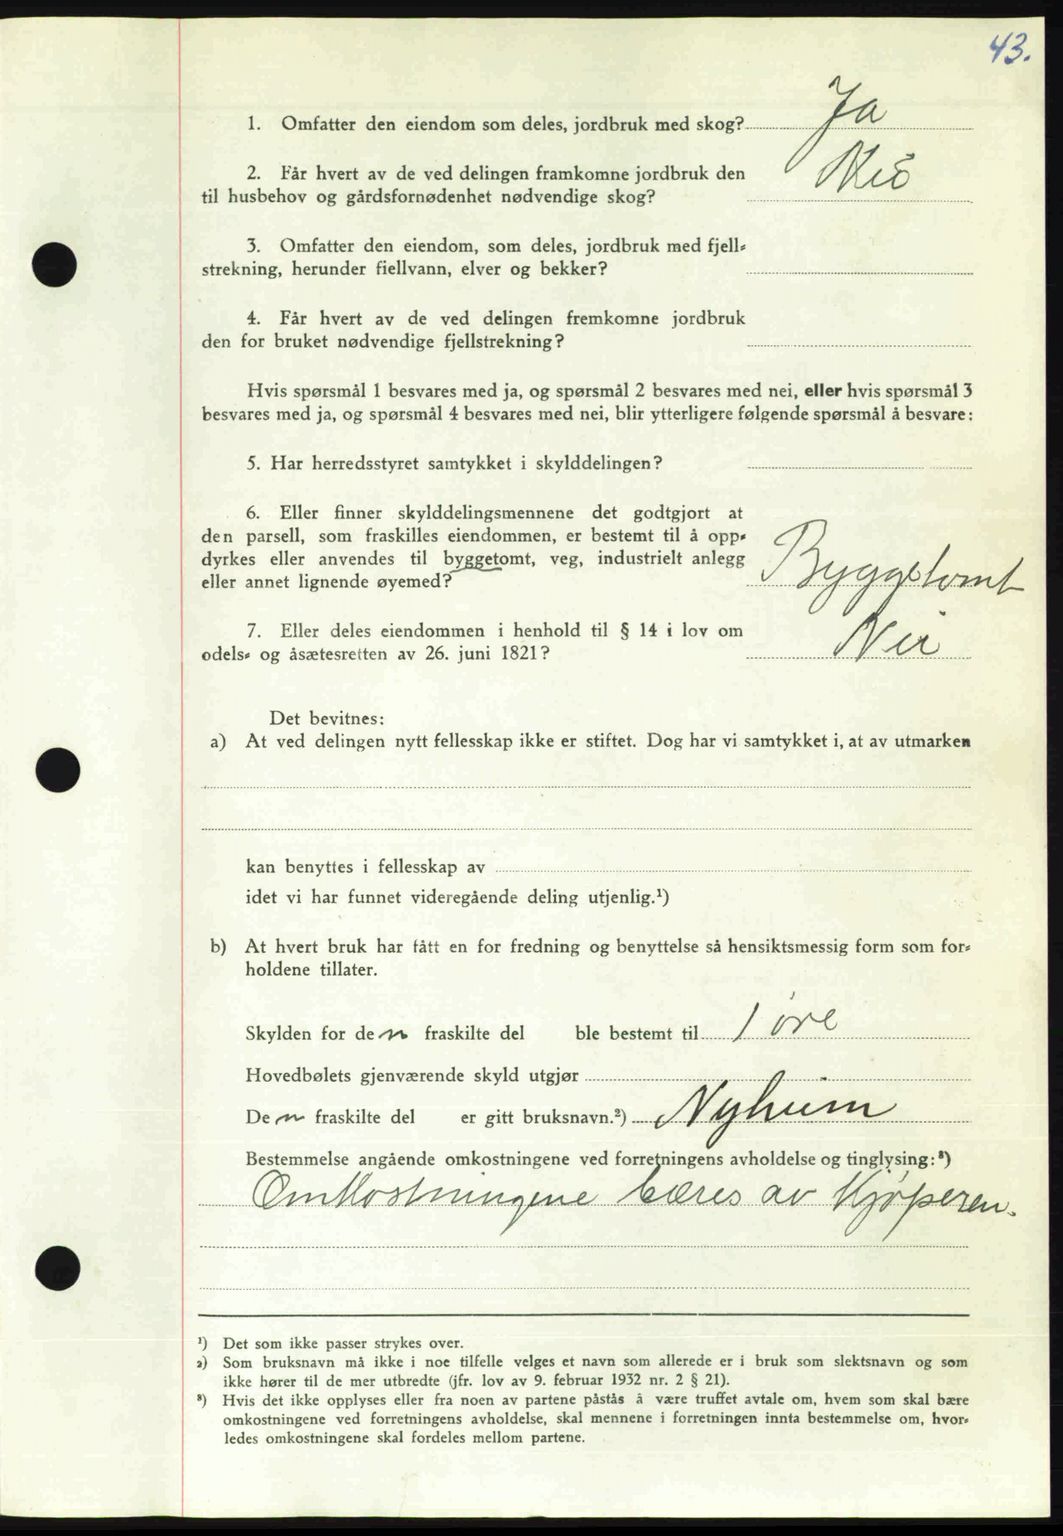 43.
1. Omfatter den eiendom som deles, jordbruk med skog? Ja
2. Får hvert av de ved delingen framkomne jordbruk den
til husbehov og gårdsfornødenhet nødvendige skog? Nei
3. Omfatter den eiendom, som deles, jordbruk med fjell=
strekning, herunder fiellvann, elver og bekker?
4. Får hvert av de ved delingen fremkomne jordbruk
den for bruket nødvendige fjellstrekning?
Hvis spørsmål 1 besvares med ja, og spørsmål 2 besvares med nei, eller hvis spørsmål 3
besvares med ja, og spørsmål 4 besvares med nei, blir ytterligere følgende spørsmål å besvare:
5. Har herredsstyret samtykket i skylddelingen?
6. Eller finner skylddelingsmennene det godtgjort at
den parsell, som fraskilles eiendommen, er bestemt til å opp=
dyrkes eller anvendes til byggetomt, veg, industrielt anlegg
eller annet lignende øyemed? Byggetomt
7. Eller deles eiendommen i henhold til § 14 i lov om
odels= og åsætesretten av 26. juni 1821? Nei
Det bevitnes:
a) At ved delingen nytt fellesskap ikke er stiftet. Dog har vi samtykket i, at av utmarken
kan benyttes i fellesskap av
idet vi har funnet videregående deling utjenlig.¹)
b) At hvert bruk har fått en for fredning og benyttelse så hensiktsmessig form som for=
holdene tillater.
Skylden for den fraskilte del ble bestemt til 1 øre
Hovedbølets gjenværende skyld utgjør
Den fraskilte del er gitt bruksnavn.²) Nyheim
Bestemmelse angående omkostningene ved forretningens avholdelse og tinglysing:³)
Omkostningene bæres av Kjøperen.
¹) Det som ikke passer strykes over.
²) Som bruksnavn må ikke i noe tilfelle velges et navn som allerede er i bruk som slektsnavn og som
ikke hører til de mer utbredte (jfr. lov av 9. februar 1932 nr. 2 § 21).
³) Hvis det ikke opplyses eller fra noen av partene påstås å være truffet avtale om, hvem som skal bære
omkostningene ved forretningens avholdelse, skal mennene i forretningen innta bestemmelse om, hvor=
ledes omkostningene skal fordeles mellom partene.